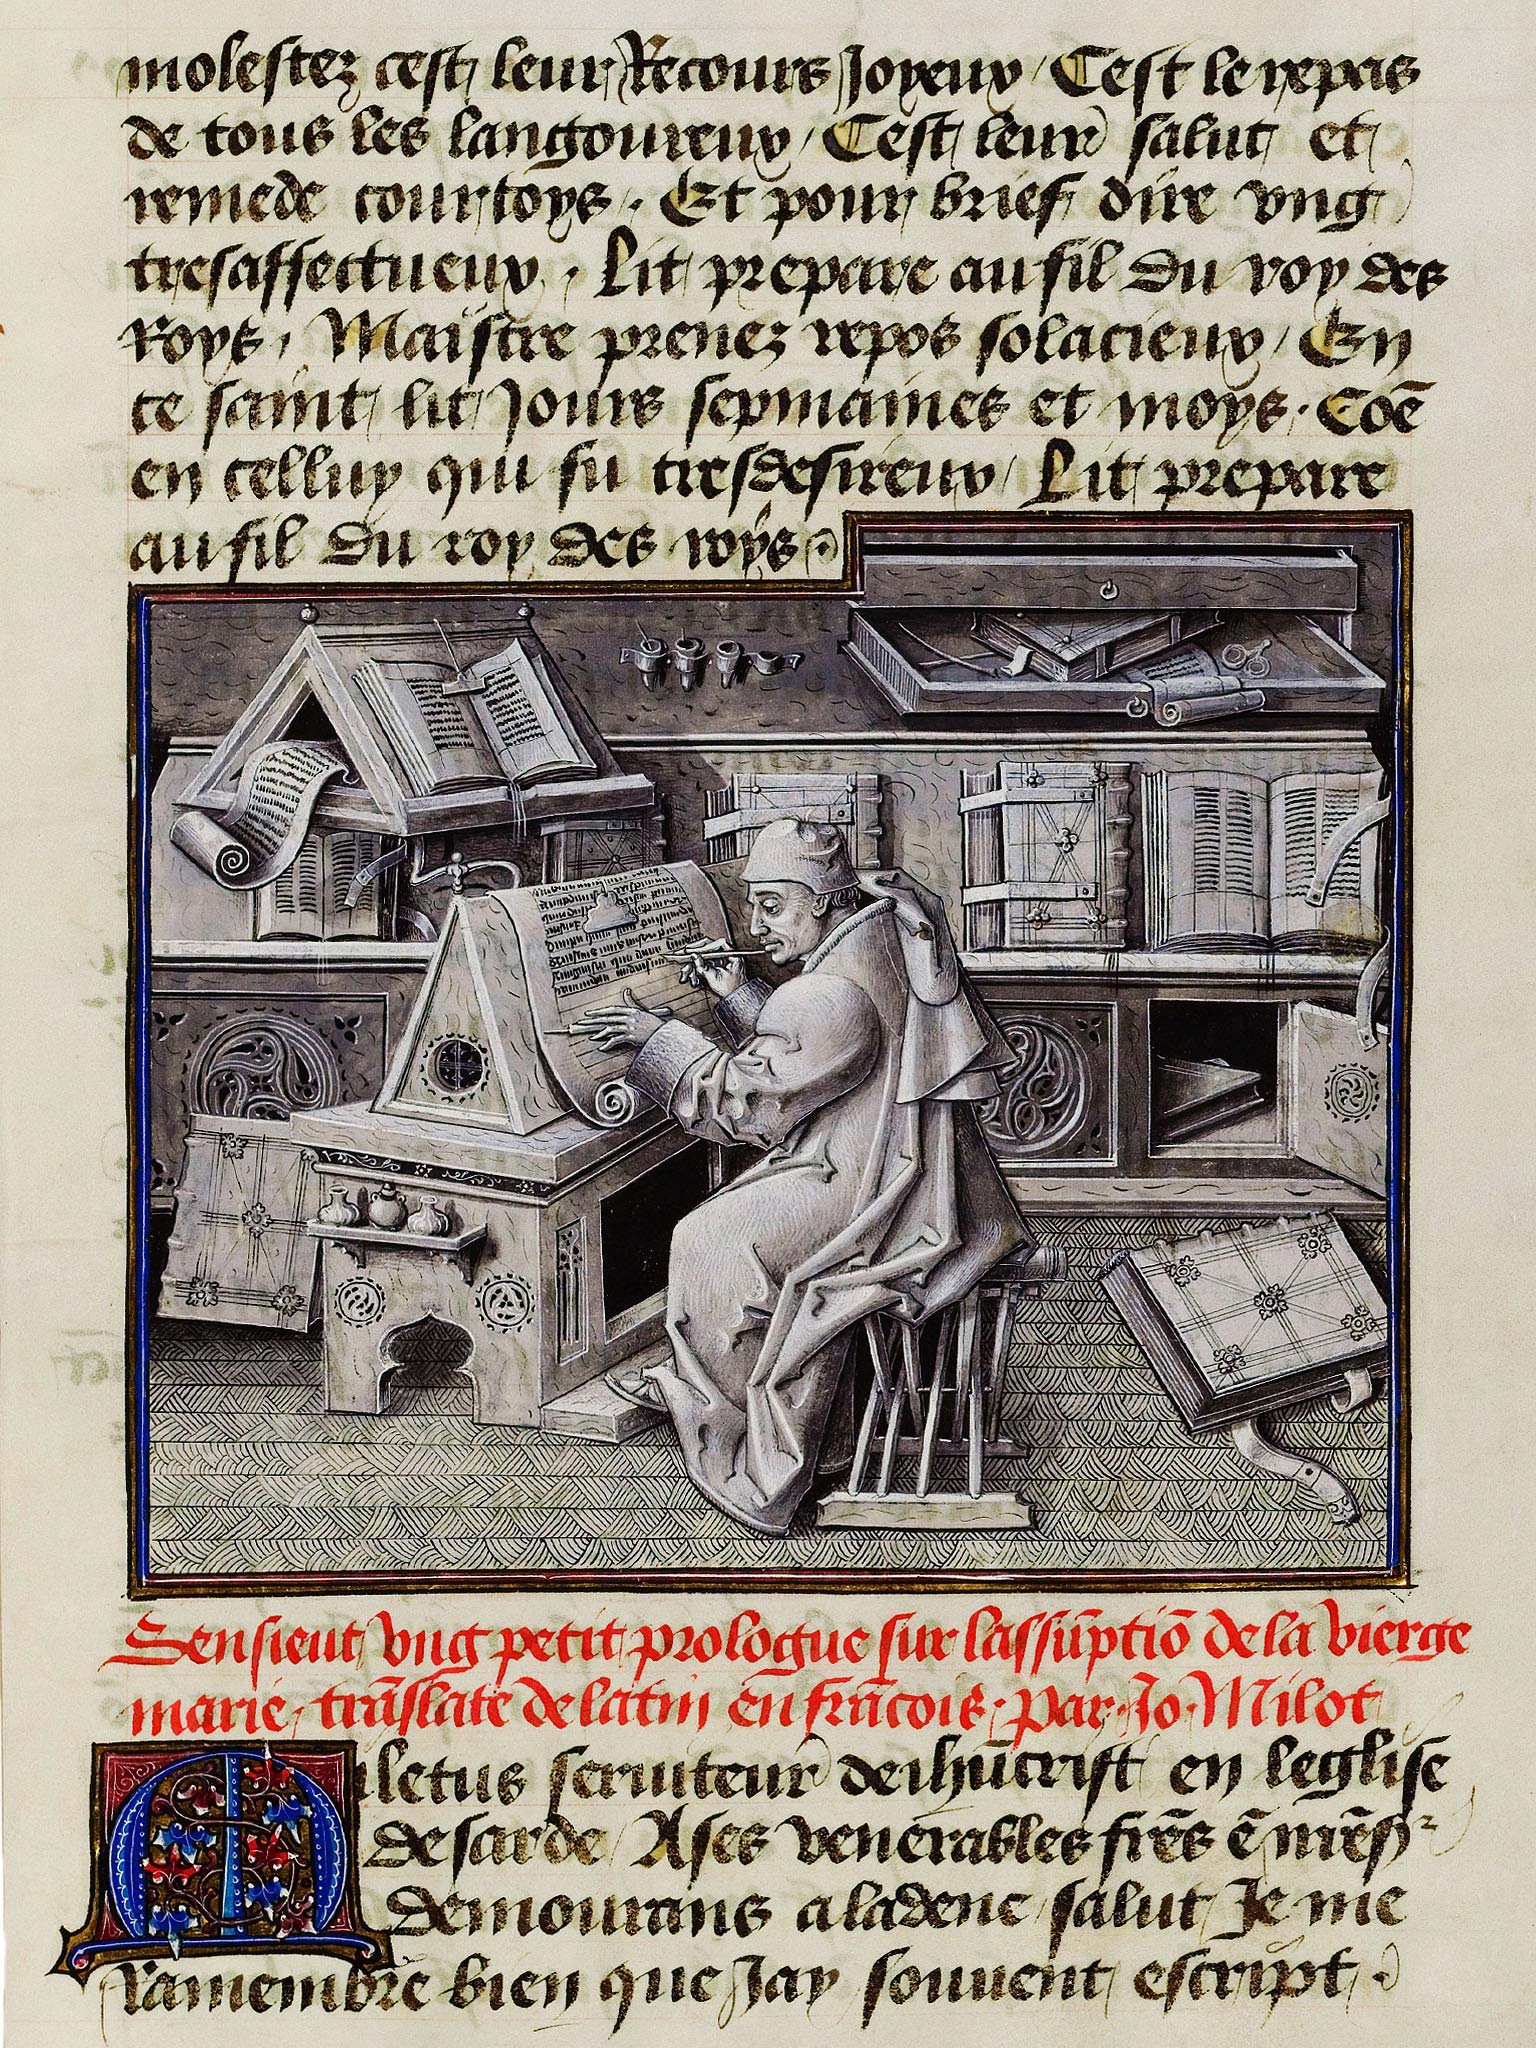 molestez cest leur Recours Joyeux / Cest le repas
de tous les langoureux / Cest leur salut et
remede courtoys . Et pour brief dire vng
tresaffectueux . Lit prepare au fil du roy des
Roys / Maistre prenez repos solacieux / En
ce saint lit Jours sepmaines et moys . Coē
en celluy qui fu tresdesireux / Lit prepare
au fil du roy des roys .
Sensieut vng petit prologue sur lassūptiō de la vierge
marie . trāslate de latin en frācois . Par . Jo . Milot
Miletus seruiteur de ihūcrist en leglise
de sarde / A ses venerables frēs ē nrē sʳ
demourans a ladene salut Je me
Ramembre bien que Jay souuent escript .